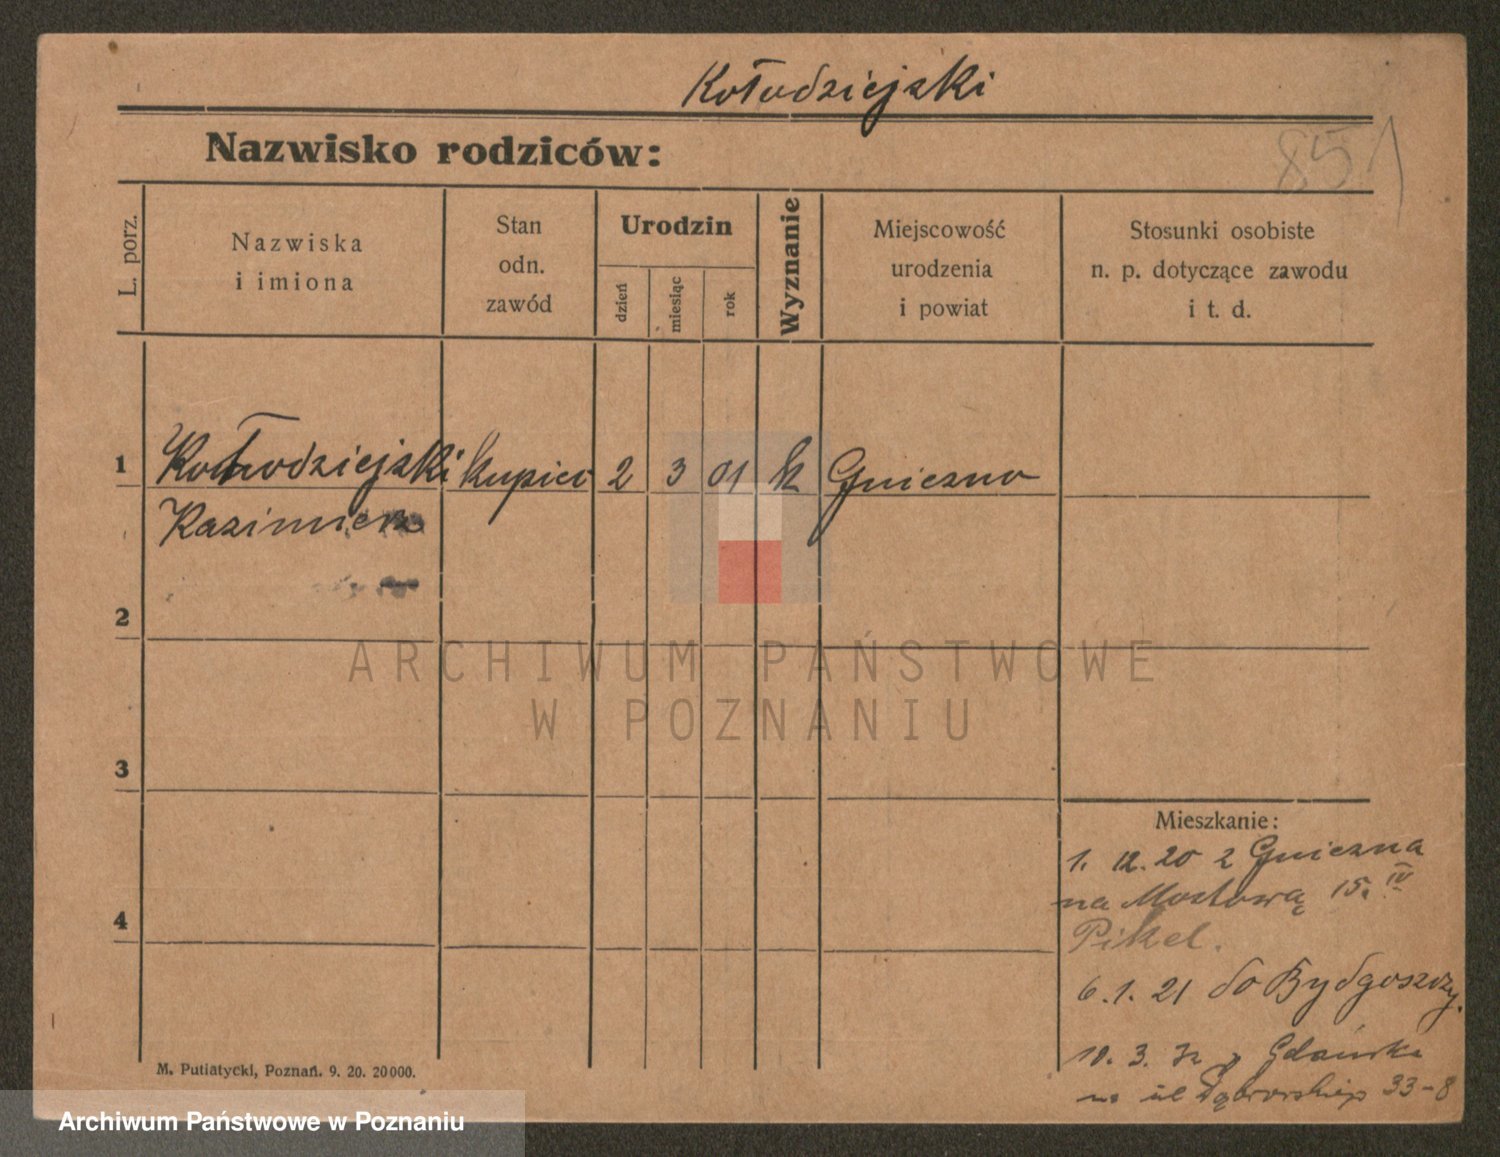 Kołodziejski
Nazwisko rodziców:
851
L. porz.
Nazwiska
i imiona
Stan
odn.
zawód
Urodzin
dzień
miesiąc
rok
Wyznanie
Miejscowość
urodzenia
i powiat
Stosunki osobiste
n. p. dotyczące zawodu
i t. d.
1 Kołodziejski kupiec 2 3 01 k Gniezno
Kazimierz
2
ARCHIWUM PAŃSTWOWE
W POZNANIU
3
Mieszkanie:
1. 12. 20 z Gniezna
na Mostową 15. IV
4
Pikel.
6. 1. 21 do Bydgoszczy.
10. 3. z Gdańska
ul Dąbrowskiego 33-8
M. Putiatycki, Poznań. 9. 20. 20000.
Archiwum Państwowe w Poznaniu